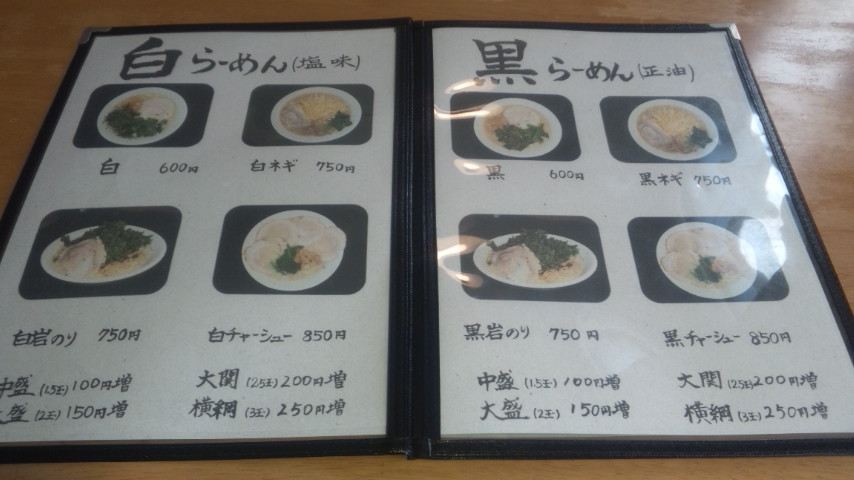 白らーめん(塩味)
白 600円
白ネギ 750円
白岩のり 750円
白チャーシュー 850円
中盛(1.5玉)100円増
大関(2.5玉)200円増
大盛(2玉)150円増
横綱(3玉)250円増
黒らーめん(正油)
黒 600円
黒ネギ 750円
黒岩のり 750円
黒チャーシュー 850円
中盛(1.5玉)100円増
大関(2.5玉)200円増
大盛(2玉)150円増
横綱(3玉)250円増